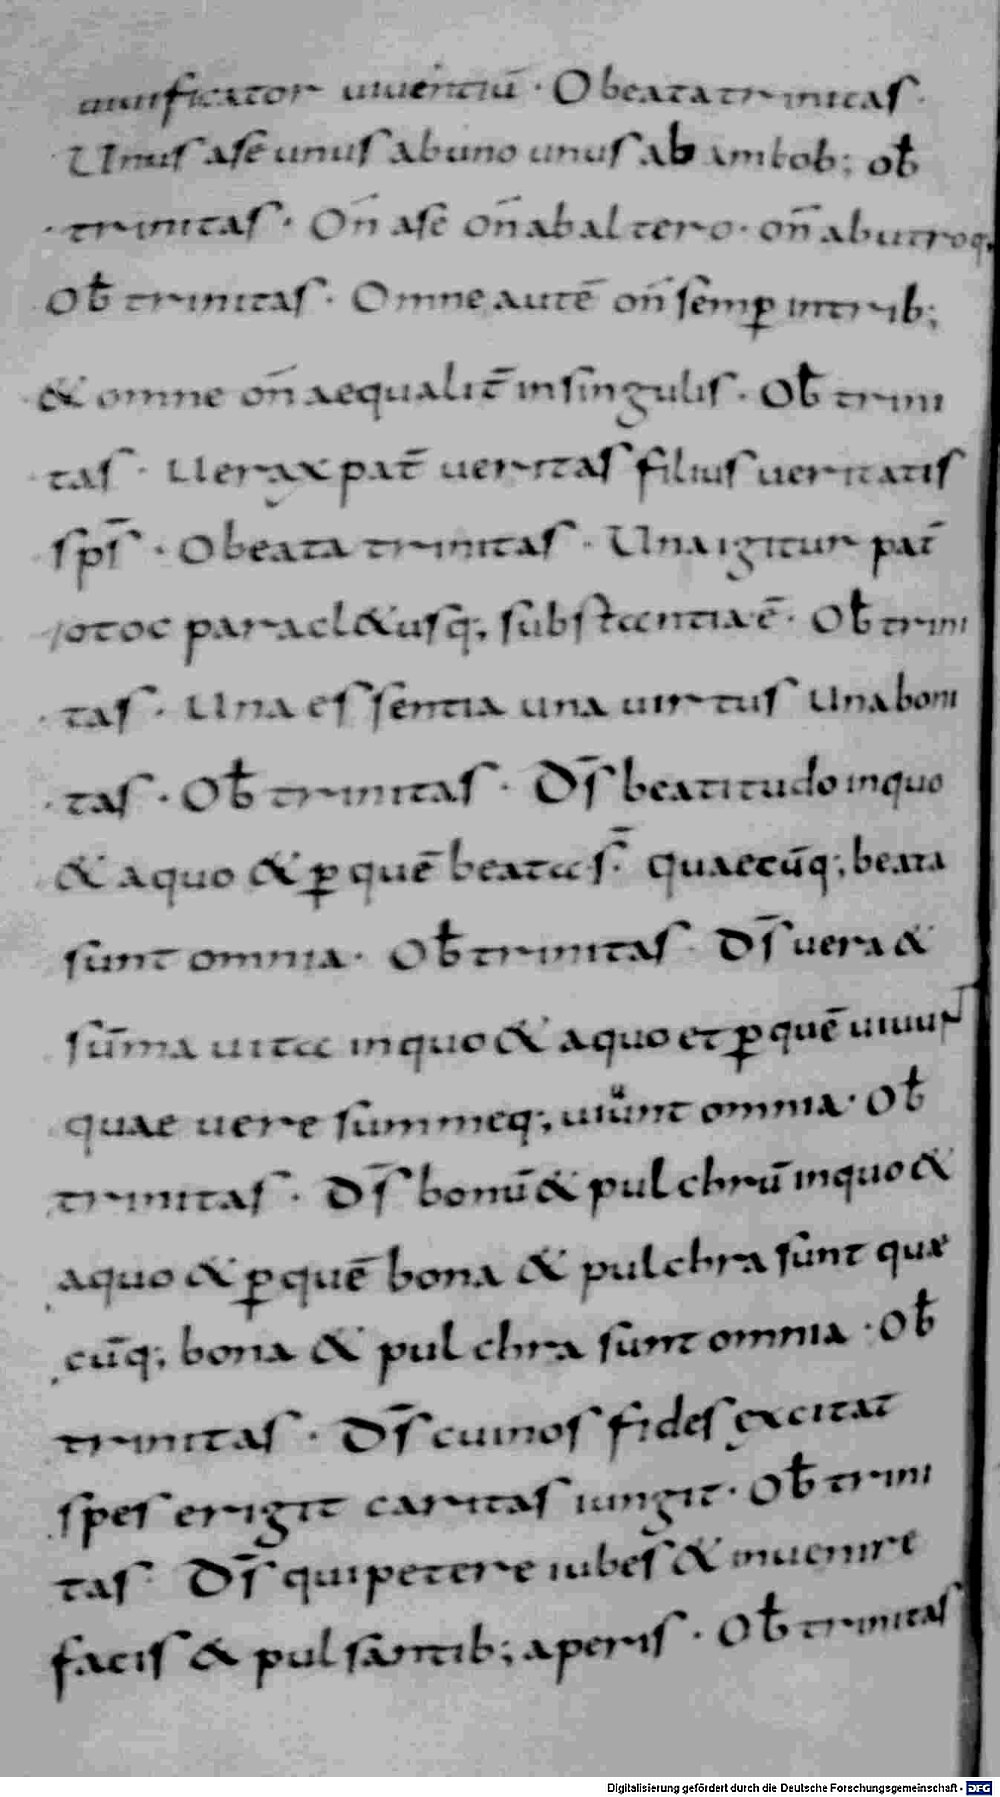 uiuificator uiuentiū · O beata trinitas ·
Unus a se unus ab uno unus ab ambob; ob̄
trinitas · On̄ a se on̄ ab altero · on̄ ab utroq;
Ob̄ trinitas · Omne autē on̄ semꝑ in trib;
& omne on̄ aequalit̄ in singulis · Ob̄ trini
tas · Uerax pat̄ ueritas filius ueritatis
sp̄s · O beata trinitas · Una igitur pat̄
logoc paracl&usq; substantia ē · Ob̄ trini
tas · Una essentia una uirtus Una boni
tas · Ob̄ trinitas · Ds̄ beatitudo in quo
& a quo & ꝑ quē beata s̄ · quaecūq; beata
sunt omnia · Ob̄ trinitas · Ds̄ uera &
sūma uita in quo & a quo et ꝑ quē uiuunt
quae uere summeq; uiuunt omnia · Ob̄
trinitas · Ds̄ bonū & pulchrū in quo &
a quo & ꝑ quē bona & pulchra sunt quae
cūq; bona & pulchra sunt omnia · Ob̄
trinitas · Ds̄ cui nos fides excitat
spes erigit caritas iungit · Ob̄ trini
tas · Ds̄ qui petere iubes & inuenire
facis & pulsantib; aperis · Ob̄ trinitas
Digitalisierung gefördert durch die Deutsche Forschungsgemeinschaft - DFG